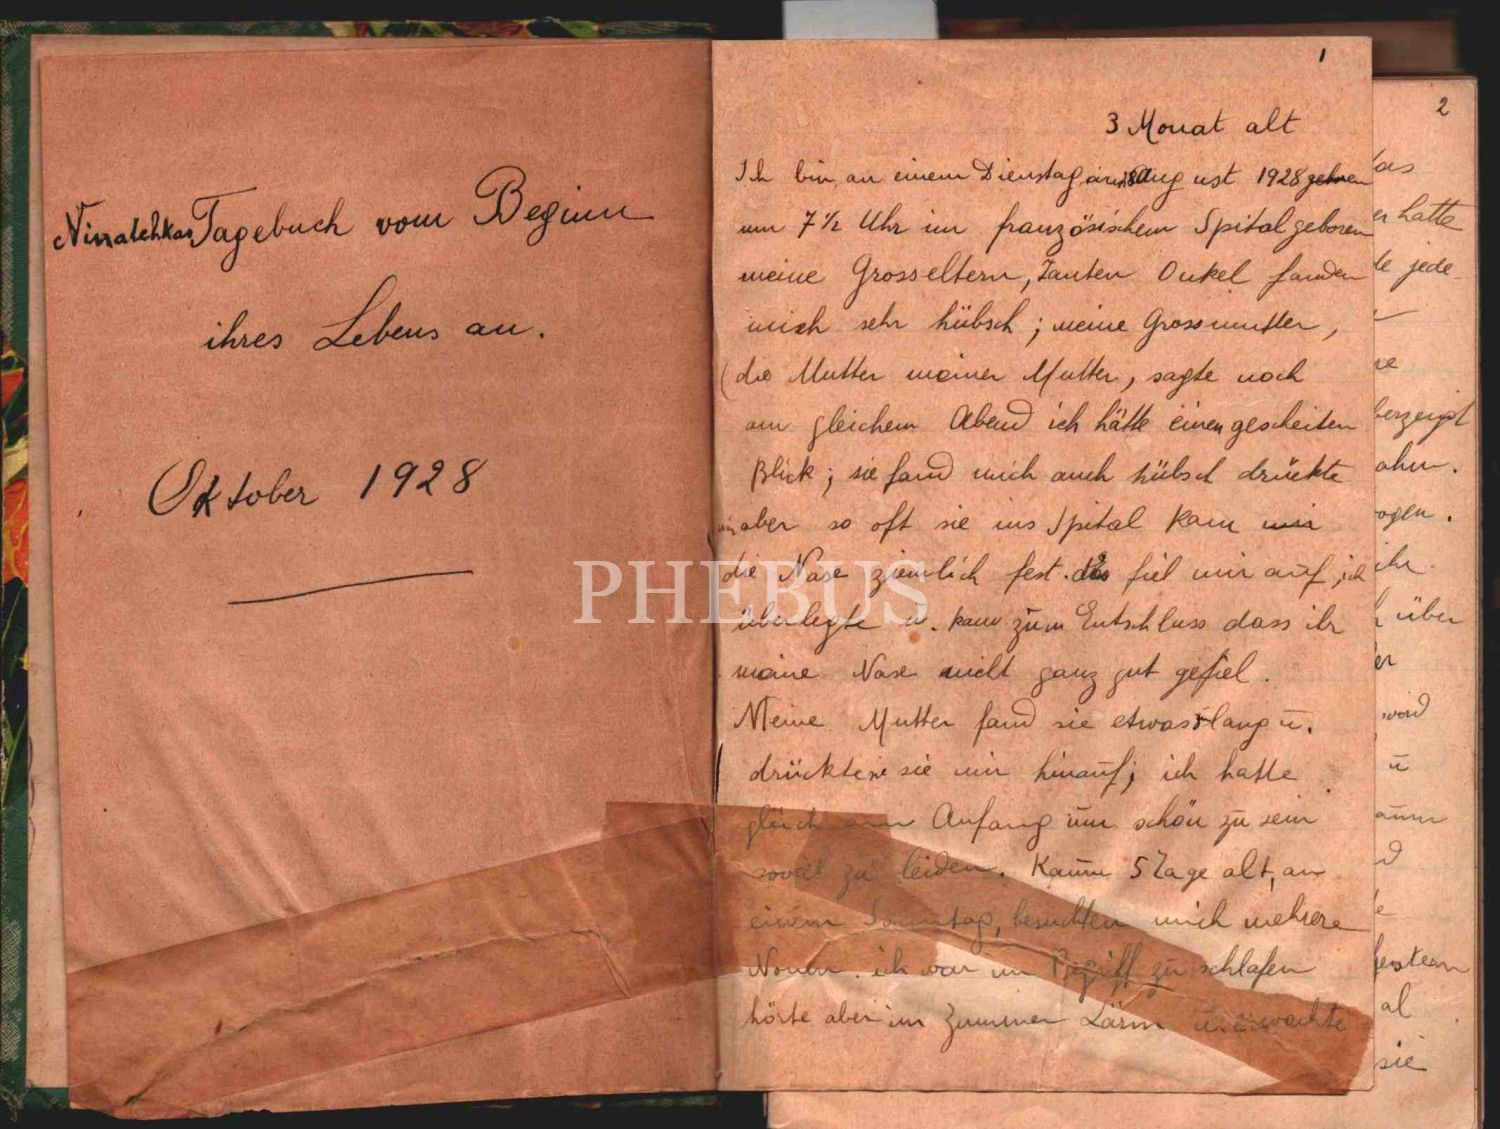 Ninatchkas Tagebuch vom Beginn
ihres Lebens an.
Oktober 1928
1
3 Monat alt
Ich bin an einem Dienstag am August 1928 geboren
um 7 1/2 Uhr im französischem Spital geboren
meine Grosseltern, Tanten Onkel fanden
mich sehr hübsch; meine Grossmutter,
(die Mutter meiner Mutter, sagte noch
am gleichem Abend ich hätte einen gescheiten
Blick; sie fand mich auch hübsch drückte
mir aber so oft sie ins Spital kam mir
die Nase ziemlich fest. das fiel mir auf, ich
überlegte u. kam zum Entschluss dass ihr
meine Nase nicht ganz gut gefiel.
Meine Mutter fand sie etwas lang u.
drückte sie mir hinauf; ich hatte
gleich am Anfang um schön zu sein
soviel zu leiden. Kaum 5 Tage alt, an
einem Sonntag, besuchten mich mehrere
Nonnen. ich war im Begriff zu schlafen
hörte aber im Zimmer Lärm u. erwachte
2
das
er hatte
te jede
berzeugt
ahn.
ogen.
ihr
h über
er
word
u
aum
d
te
estern
al
sie
PHEBUS